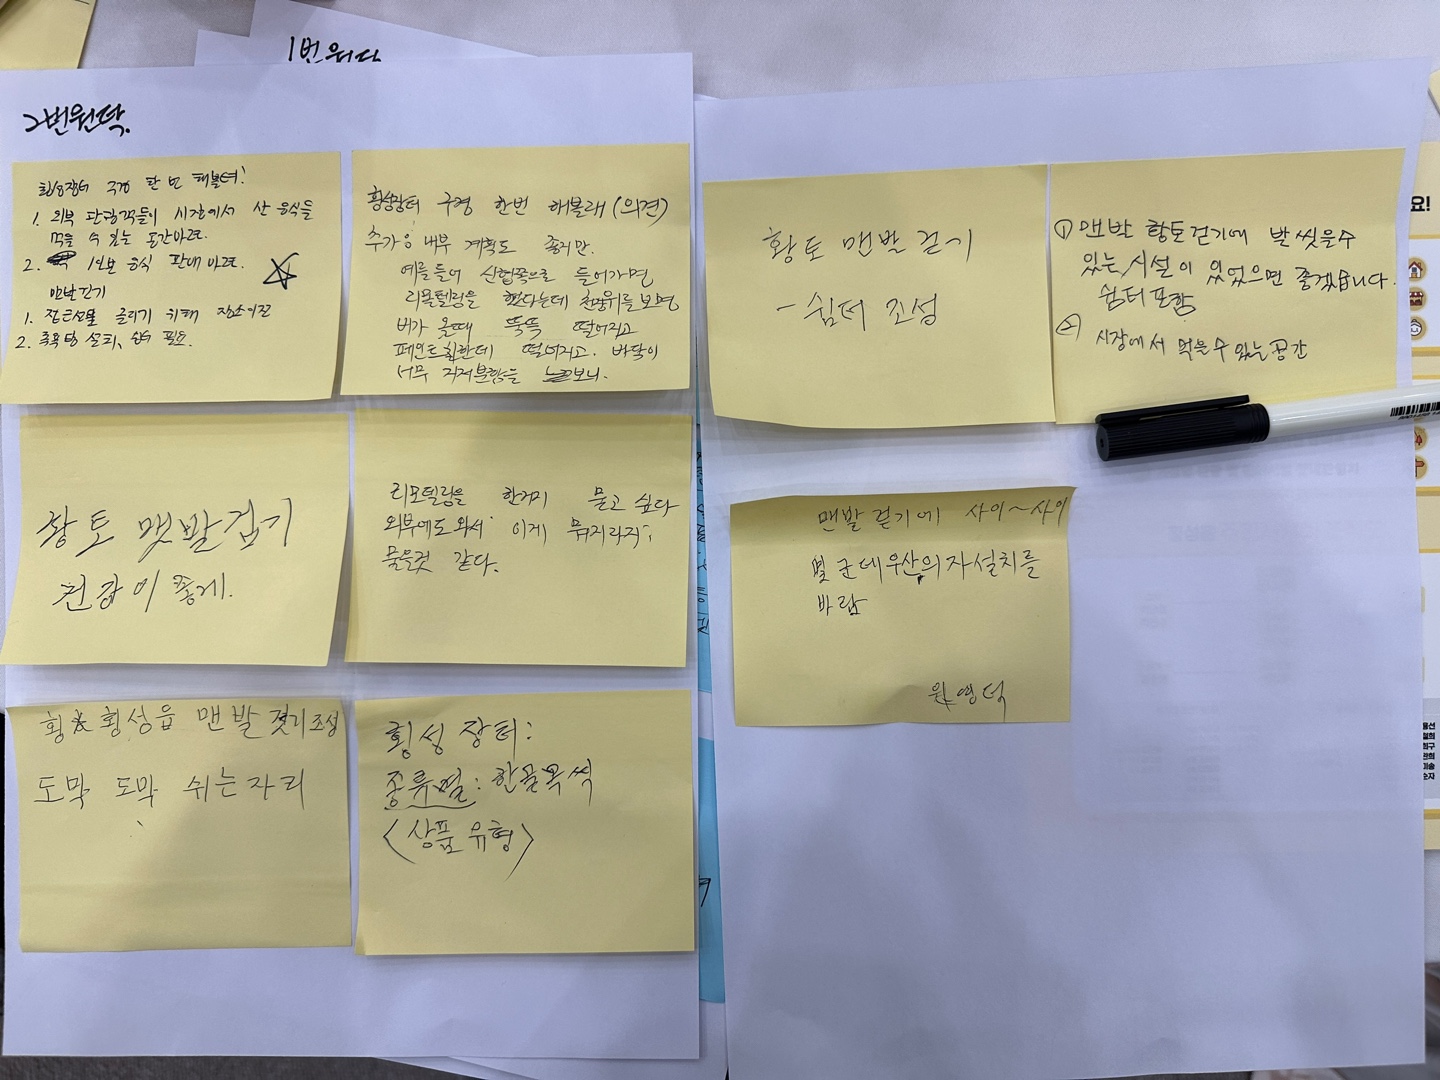 1번원탁
2번원탁.
횡성장터 구경 한 번 해볼텨!
1. 외부 관광객들이 시장에서 산 음식들
먹을 수 있는 공간마련.
2. 1인분 음식 판매 마련.
맨발걷기
1. 접근성을 늘리기 위해 장소이전
2. 족욕탕 설치, 쉼터 필요.
횡성장터 구경 한번 해볼래 (의견)
추가응 내부 계획도 좋지만.
예를들어 신협쪽으로 들어가면
리모델링을 했다는데 천장위를 보면
비가 올때 뚝뚝 떨어지고
페인트칠한데 떨어지고. 바닥이
너무 지저분함을 보니.
황토 맨발걷기
건강이 좋게.
리모델링을 한건지 묻고 싶다
외부에도 와서 이게 뭐지라지;
물을것 같다.
횡성읍 맨발 걷기조성
도막 도막 쉬는자리
횡성 장터:
종류별: 한골목씩
<상품 유형>
황토 맨발 걷기
- 쉼터 조성
① 맨발 황토걷기에 발 씻을수
있는 시설이 있었으면 좋겠습니다.
쉼터포함
② 시장에서 먹을수 있는 공간
맨발 걷기에 사이~사이
몇 군데 우산의자설치를
바람
원영덕
요!